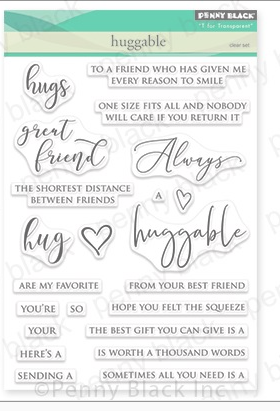 PENNY BLACK
"T for Transparent"
huggable
clear set
hugs
TO A FRIEND WHO HAS GIVEN ME
EVERY REASON TO SMILE
ONE SIZE FITS ALL AND NOBODY
WILL CARE IF YOU RETURN IT
great
friend
Always
THE SHORTEST DISTANCE
BETWEEN FRIENDS
A
hug
huggable
ARE MY FAVORITE
FROM YOUR BEST FRIEND
YOU'RE
SO
HOPE YOU FELT THE SQUEEZE
YOUR
THE BEST GIFT YOU CAN GIVE IS A
HERE'S A
IS WORTH A THOUSAND WORDS
SENDING A
SOMETIMES ALL YOU NEED IS A
©Penny Black Inc